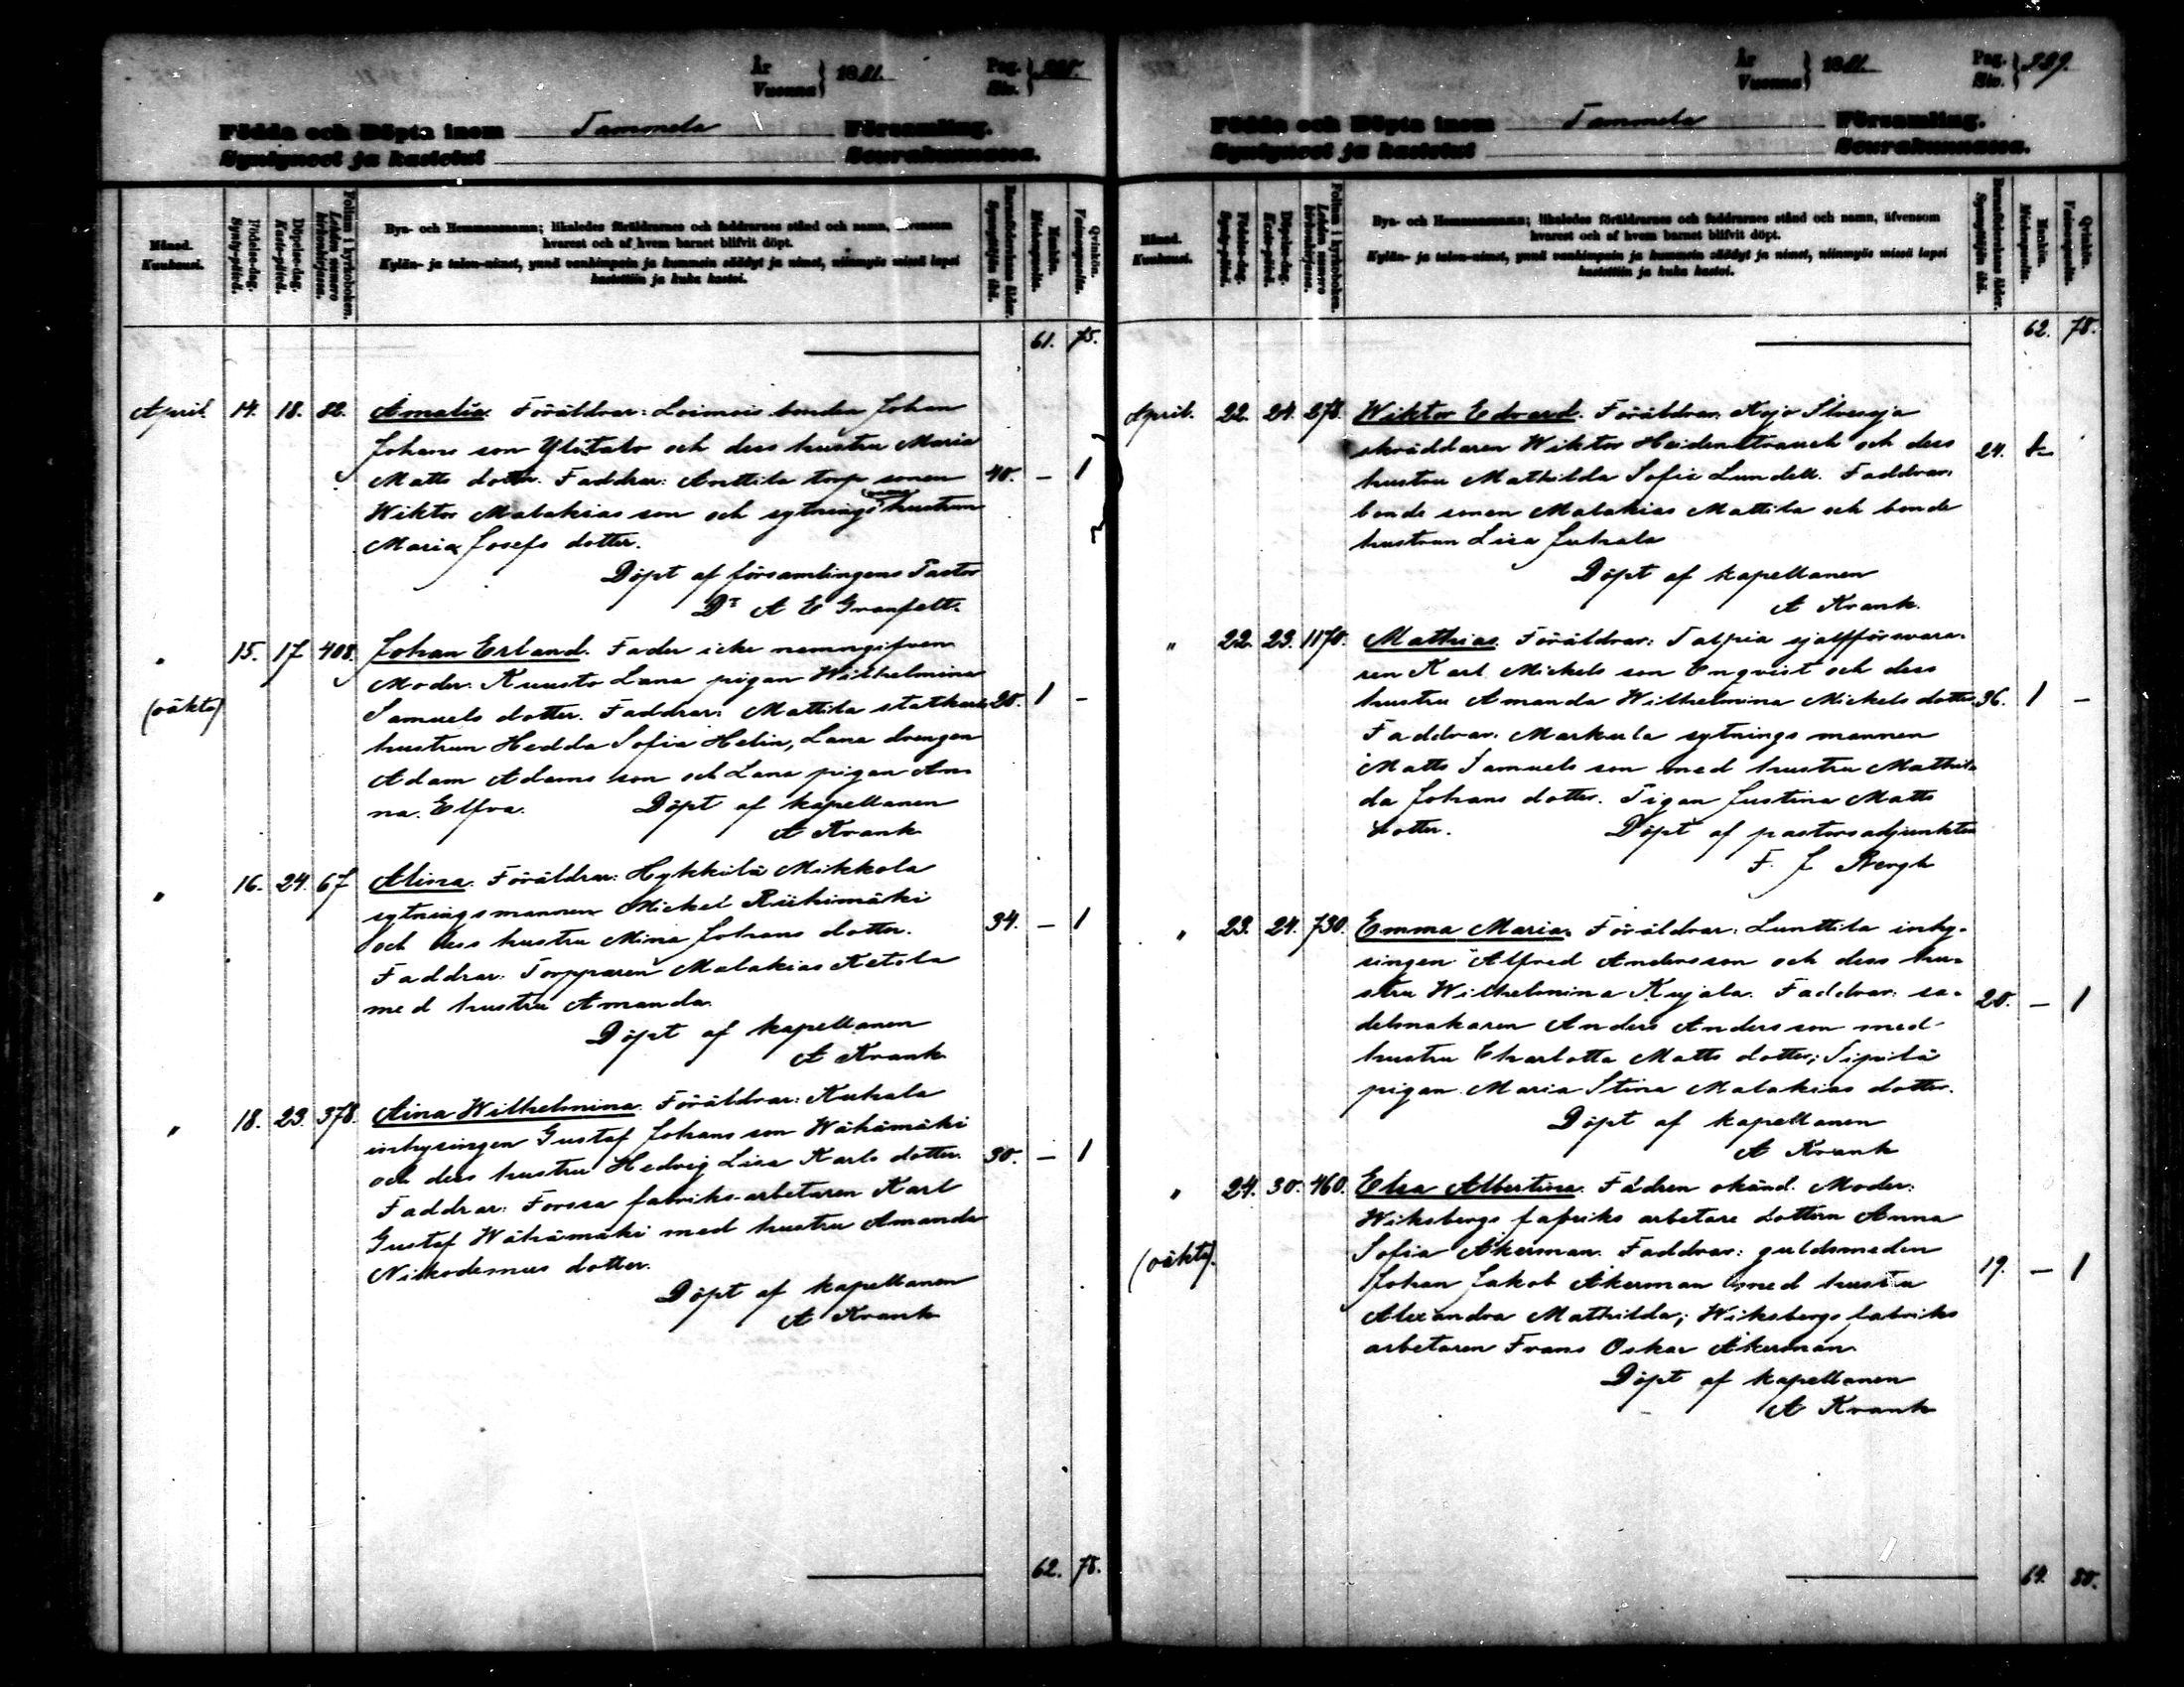 År
Vuonna } 1881.
Pag.
Siv. }
Födda och Döpta inom Tammela Församling.
Syntyneet ja kastetut Seurakunnassa.
Månad.
Kuukausi.
Födelse-dag.
Synty-päivä.
Döpelse-dag.
Kaste-päivä.
Folium i kyrkoboken.
Lehden numero kirkonkirjassa.
Bya- och Hemmansnamn; likaledes föräldrarnes och faddrarnes stånd och namn, äfvensom
hvarest och af hvem barnet blifvit döpt.
Kylän- ja talon-nimet, ynnä vanhimpain ja kummein säädyt ja nimet, niinmyös missä lapsi
kastettiin ja kuka kastoi.
Barnaföderskans ålder.
Synnyttäjän ikä.
Mankön.
Miehenpuolta.
Qvinkön.
Vaimonpuolta.
61. 75.
April. 14. 18. 82. Amalia. Föräldrar: Loimois bonden Johan
Johans son Ylitalo och dess hustru Maria
Matts dotter. Faddrar: Anttila torp sonen 40. - 1
Wiktor Malakias son och sytnings hustrun
Maria Josefs dotter.
Döpt af församlingens Pastor
Dr A E Granfelt.
" 15. 17 408. Johan Erland. Fader icke namngifven
Moder: Kuusto Lana pigan Wilhelmina
(oäkta) Samuels dotter. Faddrar: Mattila statkarls 20. 1 -
hustrun Hedda Sofia Helin, Lana drengen
Adam Adams son och Lana pigan An-
na Elfva. Döpt af kapellanen
A Krank
" 16. 24. 67 Alina. Föräldrar: Hykkilä Mikkola
sytningsmannen Mickel Riihimäki
och dess hustru Mina Johans dotter. 34. - 1
Faddrar: Torpparen Malakias Ketola
med hustru Amanda.
Döpt af kapellanen
A Krank
" 18. 23. 378. Aina Wilhelmina. Föräldrar: Kuhala
inhysingen Gustaf Johans son Wähämäki
och dess hustru Hedvig Lisa Karls dotter. 30. - 1
Faddrar: Forssa fabriks-arbetaren Karl
Gustaf Wähämäki med hustru Amanda
Nikodemus dotter.
Döpt af kapellanen
A Krank
62. 78.
År
Vuonna } 1881.
Pag.
Siv. } 229.
Födda och Döpta inom Tammela Församling.
Syntyneet ja kastetut Seurakunnassa.
Månad.
Kuukausi.
Födelse-dag.
Synty-päivä.
Döpelse-dag.
Kaste-päivä.
Folium i kyrkoboken.
Lehden numero kirkonkirjassa.
Bya- och Hemmansnamn; likaledes föräldrarnes och faddrarnes stånd och namn, äfvensom
hvarest och af hvem barnet blifvit döpt.
Kylän- ja talon-nimet, ynnä vanhimpain ja kummein säädyt ja nimet, niinmyös missä lapsi
kastettiin ja kuka kastoi.
Barnaföderskans ålder.
Synnyttäjän ikä.
Mankön.
Miehenpuolta.
Qvinkön.
Vaimonpuolta.
62. 78.
April. 22. 24. 278. Wiktor Edvard. Föräldrar: Kojo
skräddaren Wiktor Heidenstrauch och dess 24. 1 -
hustru Mathilda Sofia Lundell. Faddrar:
bonde sonen Malakias Mattila och bonde
hustrun Lisa Juhala
Döpt af kapellanen
A Krank.
" 22. 23. 1170. Mathias. Föräldrar: Talpia sjelfförsvara-
ren Karl Mickels son Enqvist och dess
hustru Amanda Wilhelmina Mickels dotter. 36. 1 -
Faddrar: Markula sytnings mannen
Matts Samuels son med hustru Mathil-
da Johans dotter. Pigan Justina Matts
dotter. Döpt af pastorsadjunkten
F. J Bergh
" 23. 24. 730. Emma Maria. Föräldrar: Lunttila inhy-
singen Alfred Andersson och dess hu-
stru Wilhelmina Kujala. Faddrar: sa- 20. - 1
delmakaren Anders Andersson med
hustru Charlotta Matts dotter; Sipilä
pigan Maria Stina Malakias dotter.
Döpt af kapellanen
A Krank
" 24. 30. 460. Elsa Albertina. Fadren okänd. Moder:
Wiksbergs fabriks arbetare dottern Anna
(oäkta). Sofia Åkerman. Faddrar: guldsmeden
Johan Jakob Åkerman med hustru 19. - 1
Alexandra Mathilda; Wiksbergs fabriks
arbetaren Frans Oskar Åkerman.
Döpt af kapellanen
A Krank
64. 80.